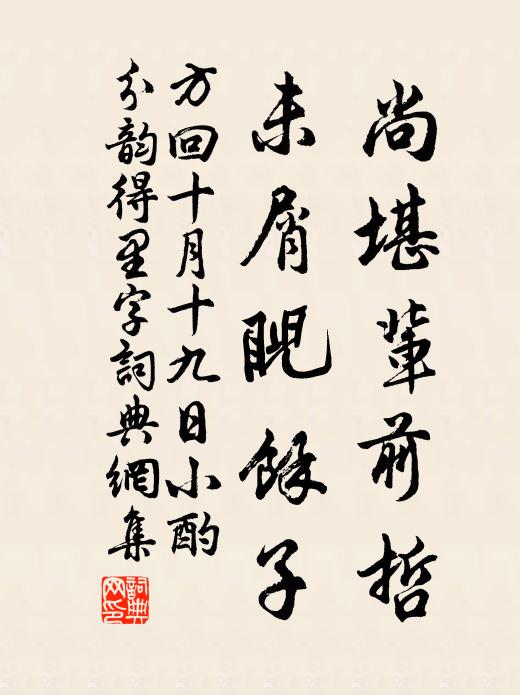 尚堪輩前哲
未屑睨餘子
方回十月十九日小酌
分韵得里字詞典網集
詞典網印